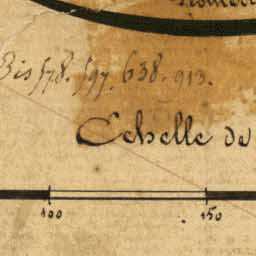 Bis 578. 597. 638. 913.
Echelle de
100 150